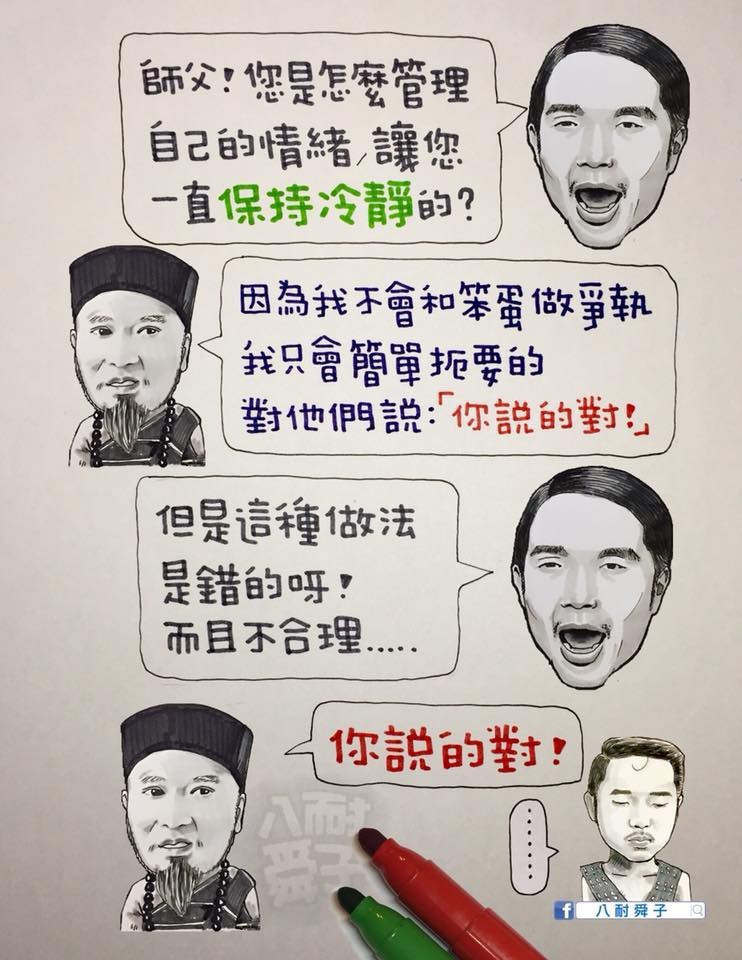 師父!您是怎麼管理
自己的情緒,讓您
一直保持冷靜的?
因為我不會和笨蛋做爭執
我只會簡單扼要的
對他們説:「你説的對!」
但是這種做法
是錯的呀!
而且不合理.....
你説的對!
........
八耐
舜子
f 八耐舜子